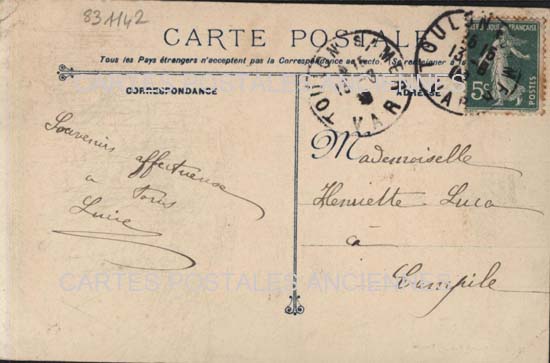 831142
CARTE POSTALE
Tous les Pays étrangers n'acceptent pas la Correspondance au recto. Se renseigner à
CORRESPONDANCE
ADRESSE
TOULON S/MER
15
13-8
VAR
TOULON S/MER
15 15
13-8
VAR
RÉPUBLIQUE FRANÇAISE
POSTES
5c
Souvenirs affectueuse
a tous
Mademoiselle
Henriette Luca
à
Campile
CARTES POSTALES ANCIENNES